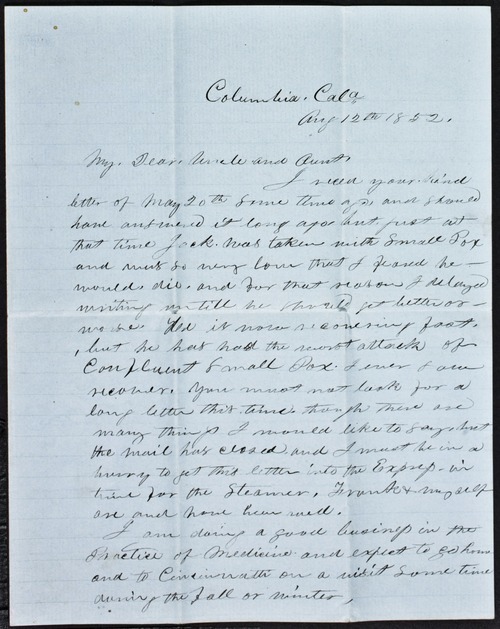 Columbia. Cala
Aug 12th 1852.
My. Dear. Uncle and Aunt
I recd your kind
letter of May 20th some time ago and should
have answered it long ago but just at
that time Jack. was taken with Small Pox
and was so very low that I feared he
would die. and for that reason I delayed
writing untill he should get better or
worse. He is now recovering fast.
but he has had the worst attack of
Confluent Small Pox. I ever saw
recover. You must not look for a
long letter this time. though there are
many things I would like to say. but
the mail has closed and I must be in a
hurry to get this letter into the Express. in
time for the Steamer. Frank & myself
are and have been well.
I am doing a good business in the
Practice of Medicine and expect to go home
and to Cincinnatti on a visit some time
during the fall or winter,